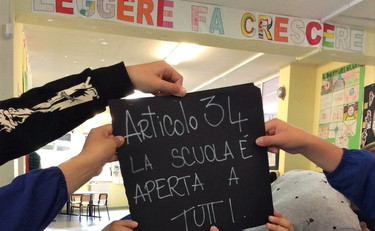 LEGGERE FA CRESCERE
Articolo 34
LA SCUOLA É
APERTA A
TUTTI.